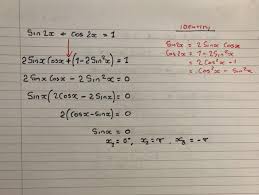 Sin2x + cos2x = 1
2Sinx cosx + (1-2Sin²x) = 1
2Sinx cosx - 2Sin²x = 0
Sinx(2cosx - 2Sinx) = 0
2(cosx-sinx) = 0
Sinx = 0
x₁ = 0°, x₂ = π, x₃ = -π
identity
Sin2x = 2Sinx cosx
Cos2x = 1-2Sin²x
= 2Cos²x - 1
= Cos²x - Sin²x